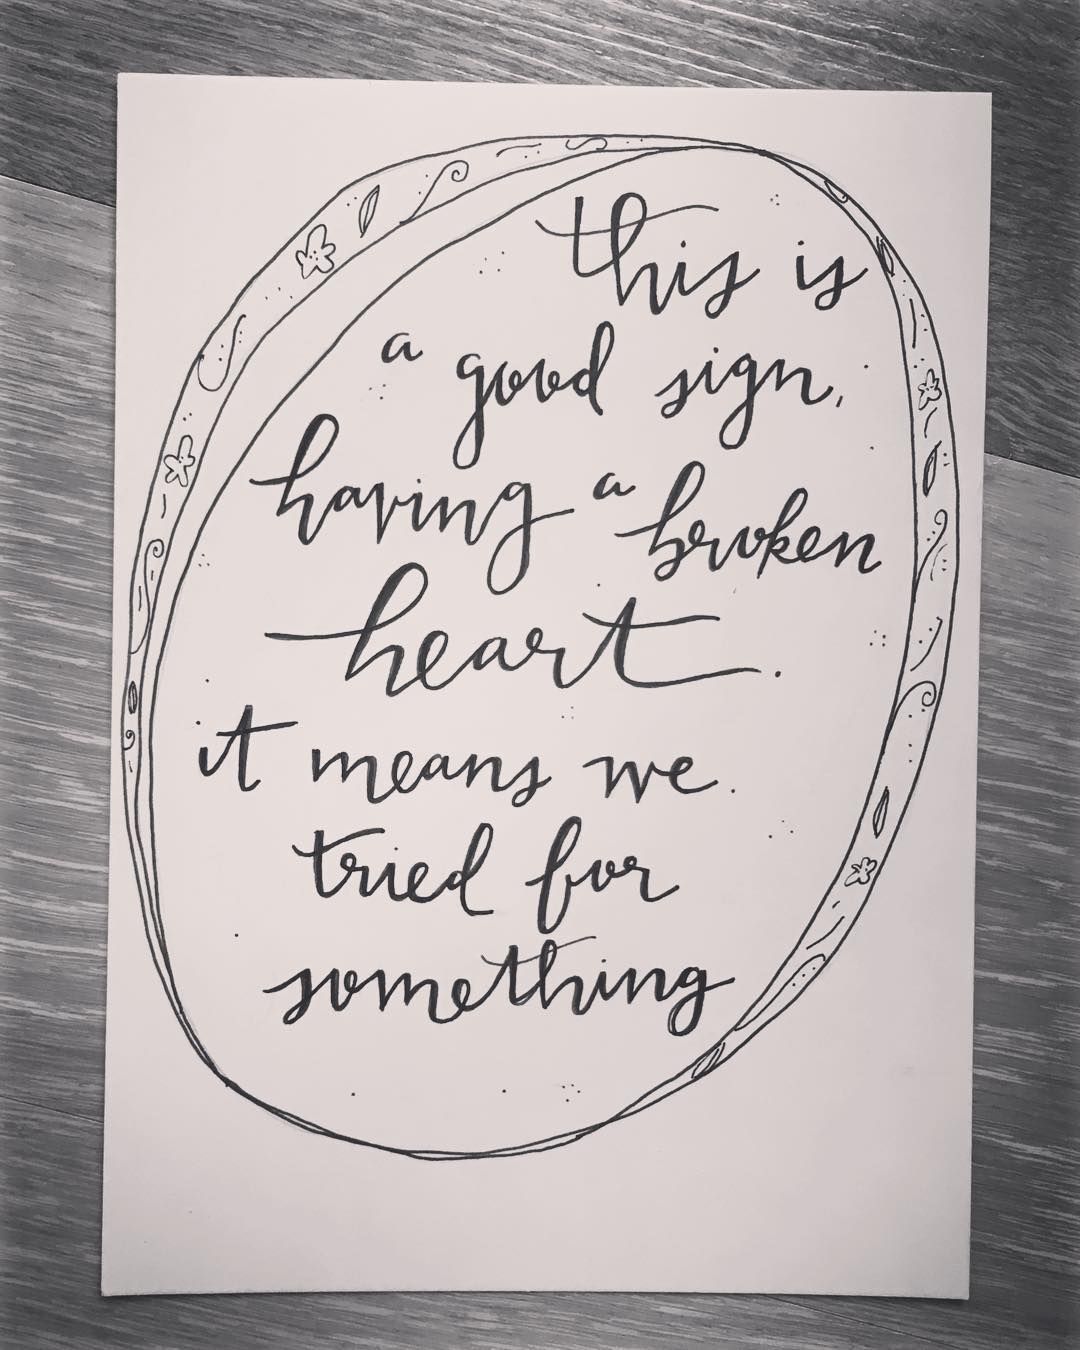 this is
a good sign,
having a broken
heart.
it means we
tried for
something